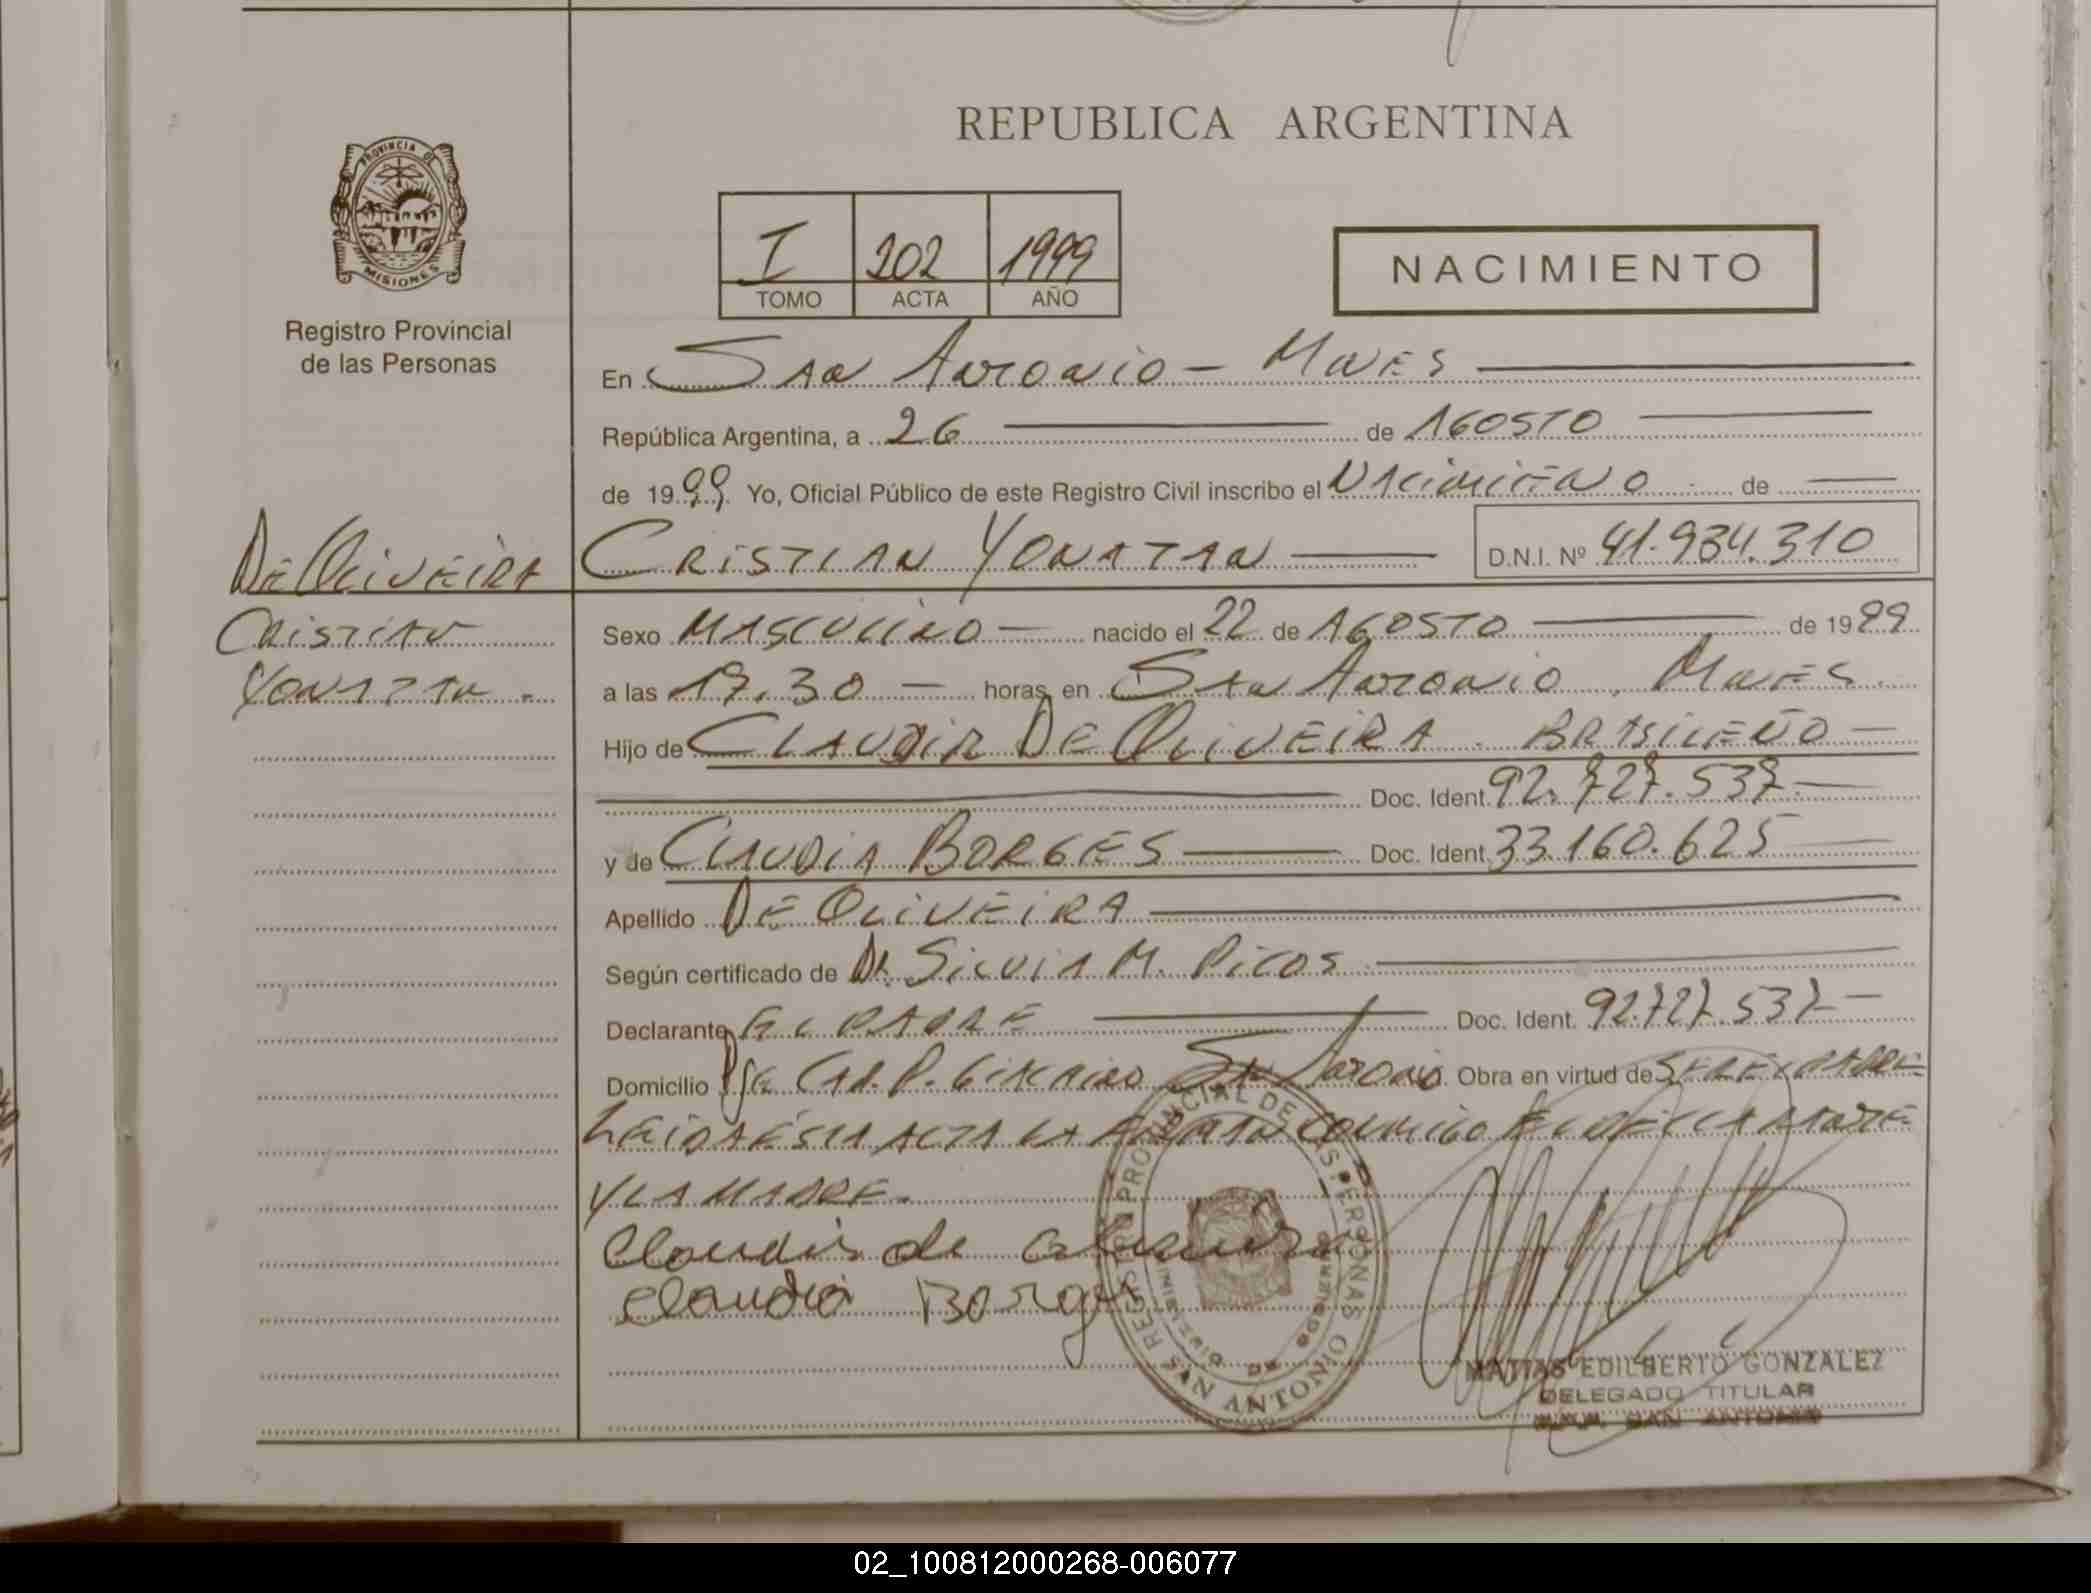 REPUBLICA ARGENTINA
PROVINCIA DE
MISIONES
Registro Provincial
de las Personas
I 202 1999
TOMO ACTA AÑO
NACIMIENTO
En San Antonio - Mnes
República Argentina, a 26 de AGOSTO
de 1999 Yo, Oficial Público de este Registro Civil inscribo el NACIMIENTO de
CRISTIAN YONATAN D.N.I. Nº 41.934.310
DE OLIVEIRA
CRISTIAN
YONATAN.
Sexo MASCULINO nacido el 22 de AGOSTO de 1999
a las 17.30 horas, en SAN ANTONIO, Mnes.
Hijo de CLAUDIR DE OLIVEIRA. BRASILEÑO
Doc. Ident. 92.727.537
y de CLAUDIA BORGES Doc. Ident. 33.160.625
Apellido DE OLIVEIRA
Según certificado de Dr. SILVIA M. PICOS
Declarante EL PADRE Doc. Ident. 92.727.537
Domicilio SAN ANTONIO. Obra en virtud de SER EL PADRE
LEIDA ESTA ACTA LA FIRMAN CONMIGO EL DECLARANTE
Y LA MADRE.
Claudir de Oliveira
Claudia Borges
REGISTRO PROVINCIAL DE LAS PERSONAS
SAN ANTONIO
MATIAS EDILBERTO GONZALEZ
DELEGADO TITULAR
SAN ANTONIO
02_100812000268-006077